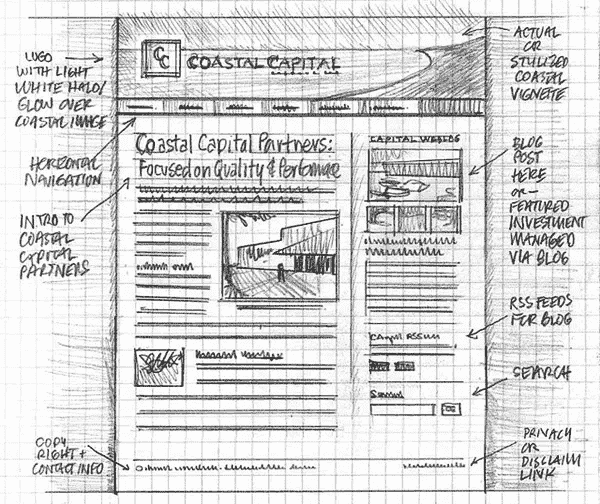 LOGO
WITH LIGHT
WHITE HALO/
GLOW OVER
COASTAL IMAGE
HORIZONTAL
NAVIGATION
INTRO TO
COASTAL
CAPITAL
PARTNERS
COPY
RIGHT +
CONTACT INFO
CC
COASTAL CAPITAL
Coastal Capital Partners:
Focused on Quality & Performance
CAPITAL WEBLOG
Capital RSS
Search
GO
ACTUAL
OR
STYLIZED
COASTAL
VIGNETTE
BLOG
POST
HERE
OR—
FEATURED
INVESTMENT
MANAGED
VIA BLOG
RSS FEEDS
FOR BLOG
SEARCH
PRIVACY
OR
DISCLAIM
LINK